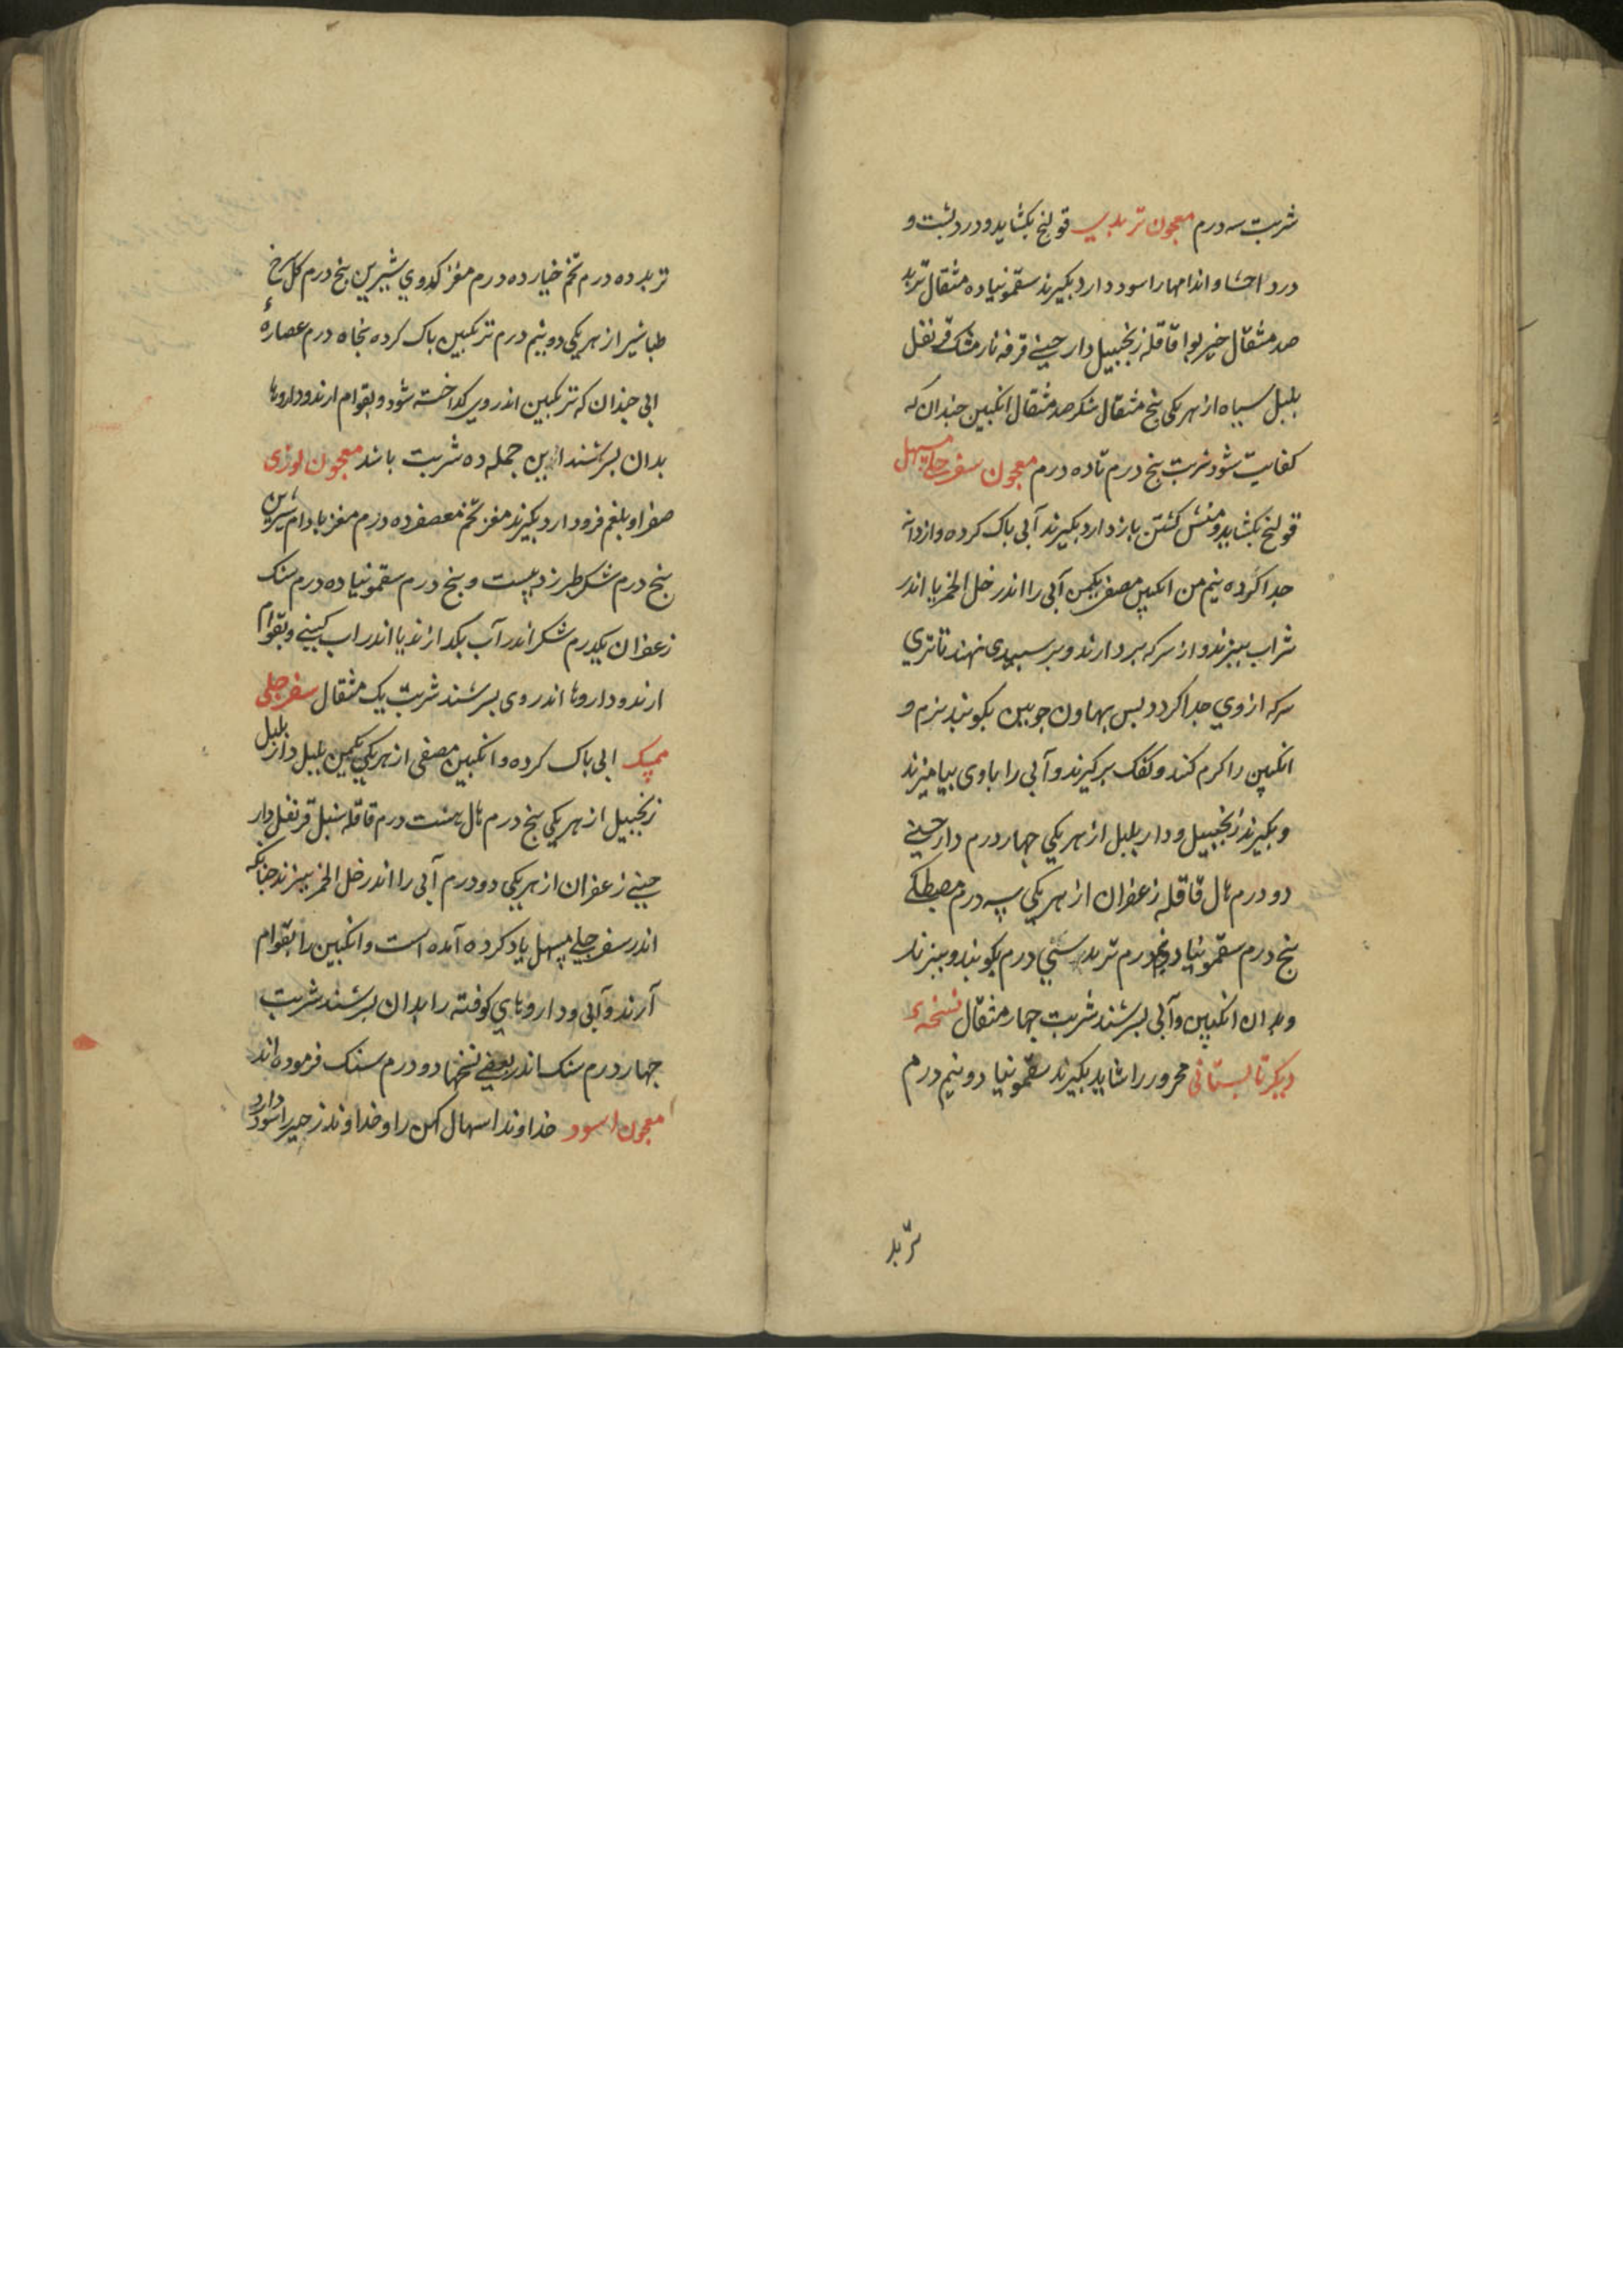 شربت سه درم معجون تربدی قولنج بکشاید و درد پشت و
درد احشا و اندامها را سود دارد بکیرند سقمونیا ده مثقال تربد
صد مثقال خیربوا قاقله زنجبیل دارچینی قرفه نارمشک قرنفل
بلبل سیاه از هر یکی پنج مثقال شکر صد مثقال انکبین چندان که
کفایت شود شربت پنج درم تا ده درم معجون سفرجلی مسهل
قولنج بکشاید و منش کشتن باز دارد بکیرند آبی پاک کرده و از دانه
جدا کرده نیم من انکبین مصفی یکمن آبی را اندر خل الخمر یا اندر
شراب بپزند و از سرکه بردارند و بر سبیدی نهند تا تری
سرکه از وی جدا کردد بس بهاون جوبین بکوبند نرم و
انکبین را کرم کنند و کفک برکیرند و آبی را با وی بیامیزند
و بکیرند زنجبیل و دار بلبل از هر یکی چهار درم دارچینی
دو درم هال قاقله زعفران از هر یکی سه درم مصطکی
پنج درم سقمونیا ده درم تربد سی درم بکوبند و ببزند
و بدان انکبین و آبی بسرشند شربت چهار مثقال نسخهٔ
دیکر تابستانی محرور را شاید بکیرند سقمونیا دو نیم درم
تربد
تربد ده درم تخم خیار ده درم مغز کدوی شیرین پنج درم کل سرخ
طباشیر از هر یکی دو نیم درم ترنکبین پاک کرده پنجاه درم عصارهٔ
آبی چندان که ترنکبین اندر وی کداخته شود و بقوام ارند و داروها
بدان بسرشند این جمله ده شربت باشد معجون لوزی
صفرا و بلغم فرود ارد بکیرند مغز تخم معصفر ده درم مغز بادام شیرین
پنج درم شکر طبرزد بیست و پنج درم سقمونیا ده درم سنک
زعفران یکدرم شکر اندر آب بکدازند یا اندر اب کبینی و بقوام
ارند و داروها اندر وی بسرشند شربت یک مثقال سفرجلی
ممسک ابی پاک کرده و انکبین مصفی از هر یکی یکمن بلبل دار بلبل
زنجبیل از هر یکی پنج درم هال هشت درم قاقله سنبل قرنفل دار
چینی زعفران از هر یکی دو درم آبی را اندر خل الخمر بپزند چنانکه
اندر سفرجلی مسهل یاد کرده آمده است و انکبین را بقوام
آرند و آبی و داروهای کوفته را بدان بسرشند شربت
چهار درم سنک اندر بعضی نسخها دو درم سنک فرموده اند
معجون اسود خداوند اسهال کهن را و خداوند زحیر را سود دارد